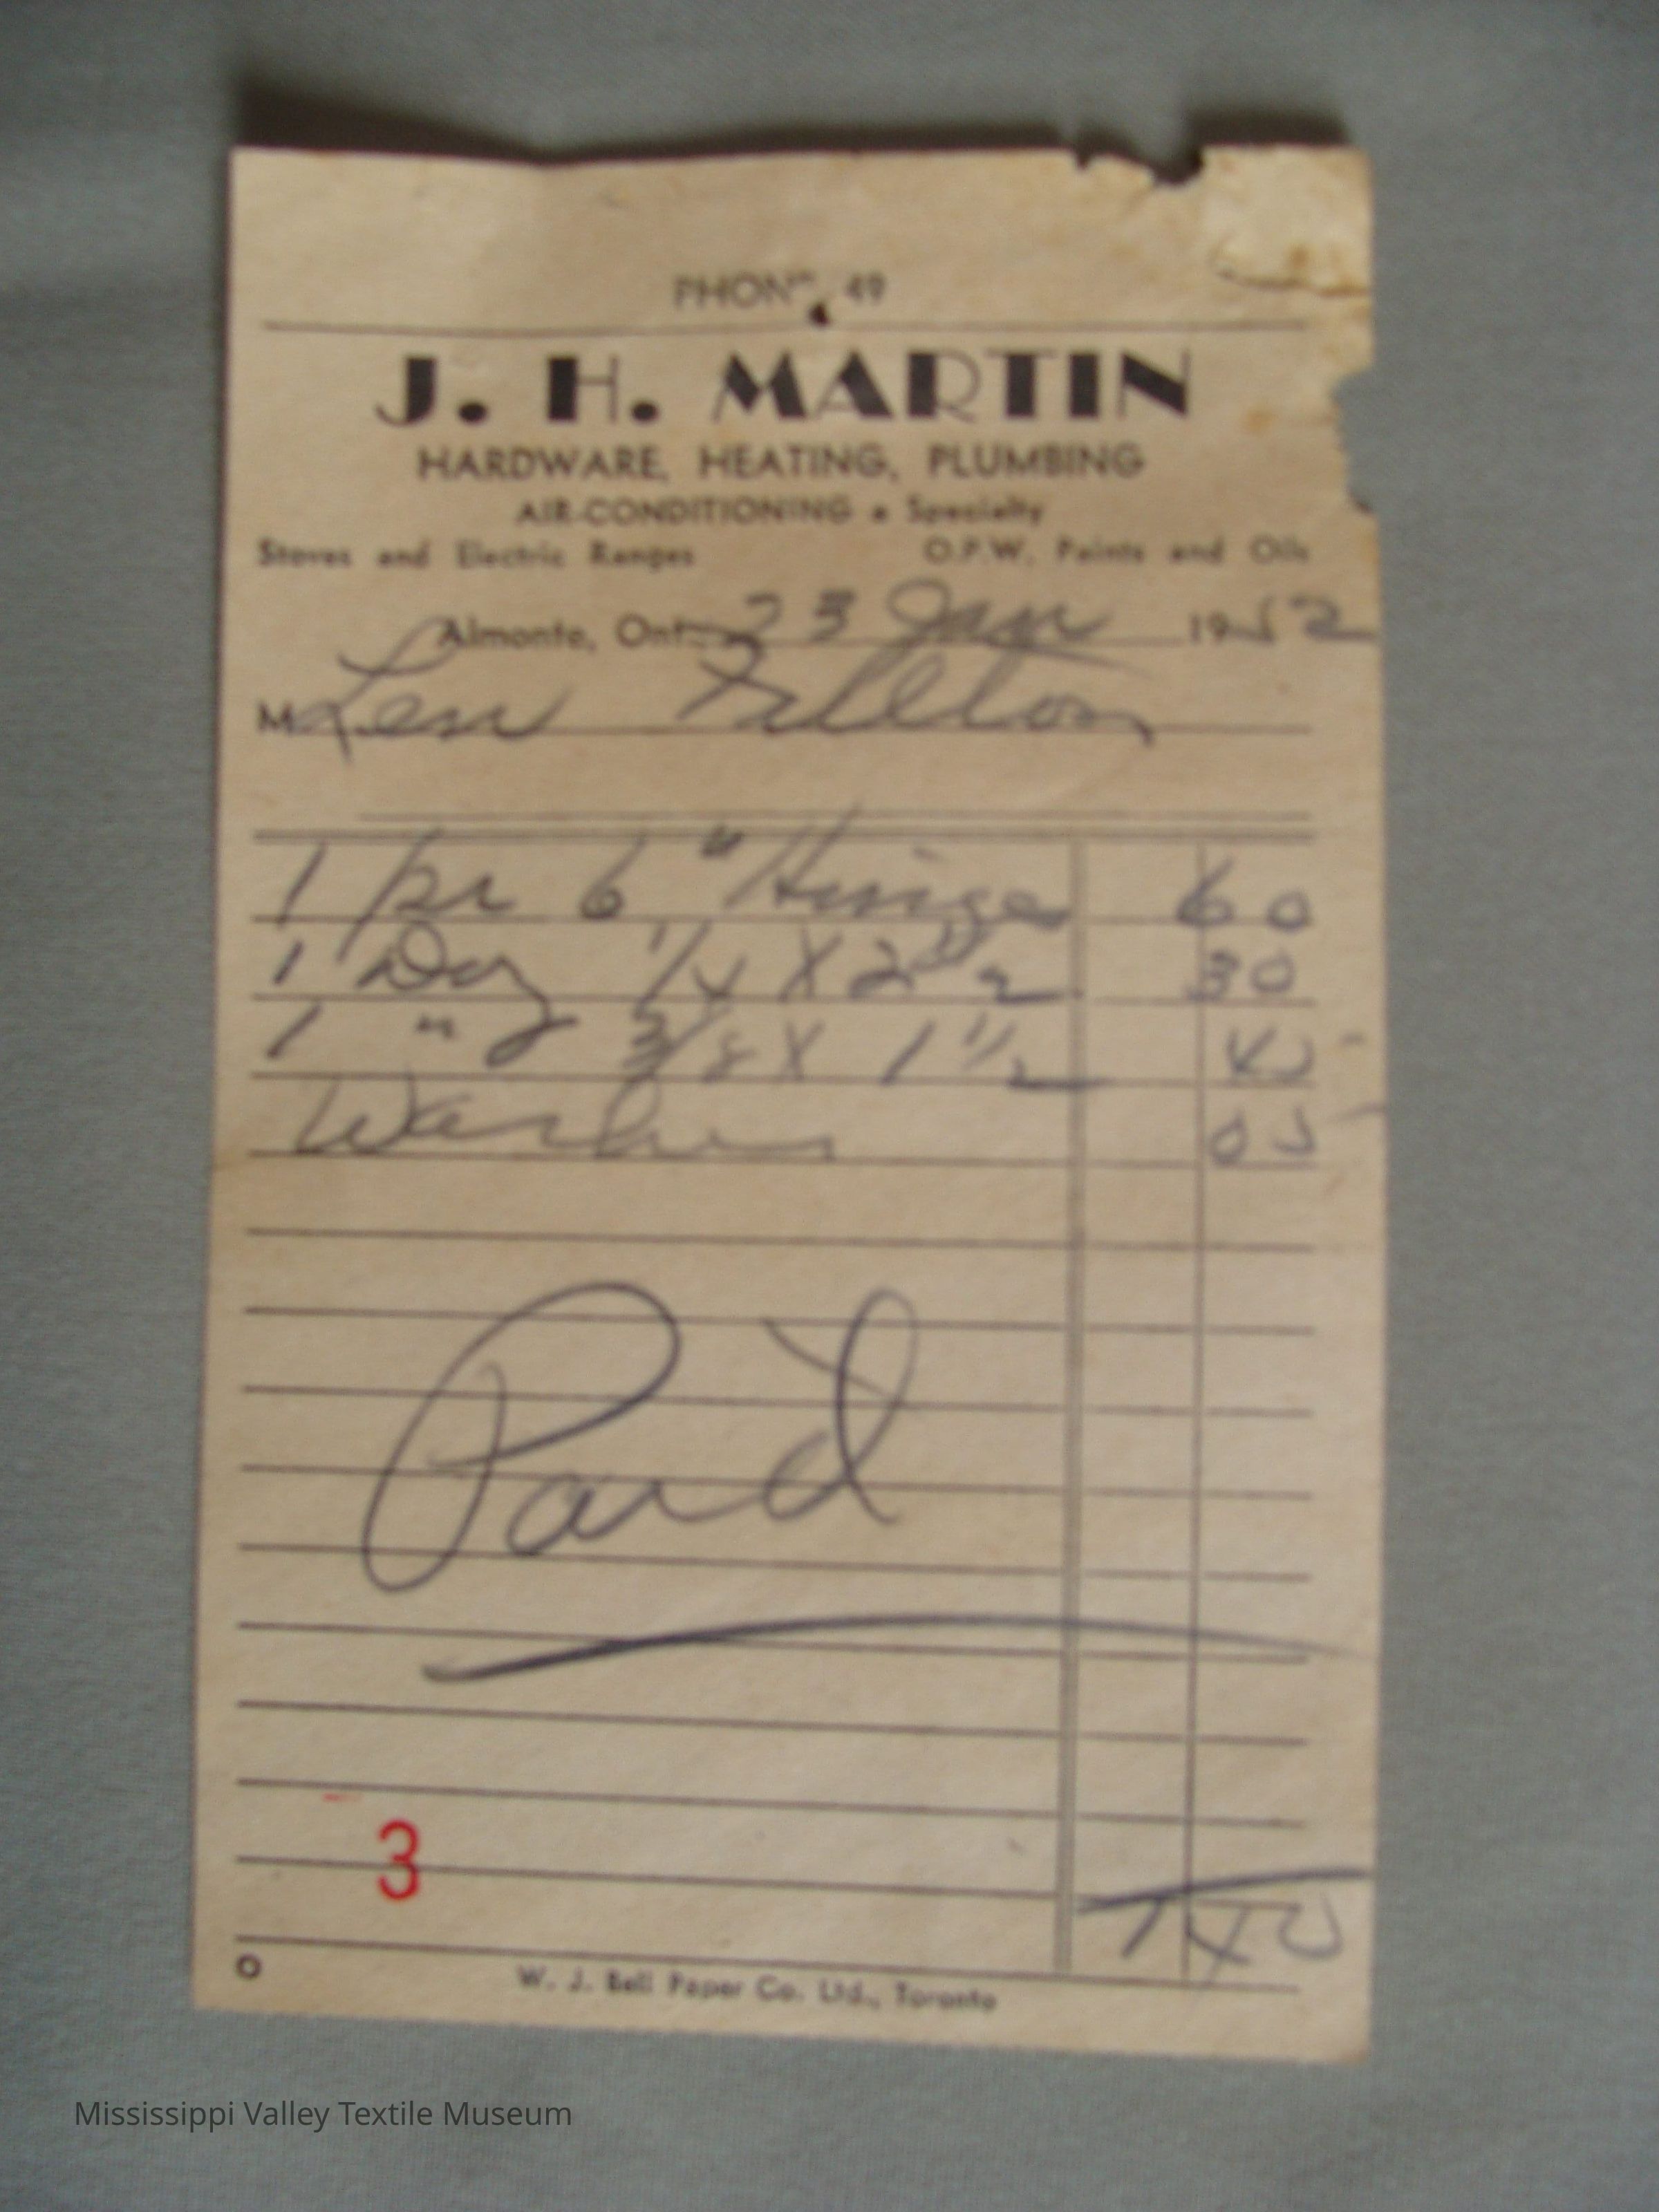 PHONE 49
J. H. MARTIN
HARDWARE, HEATING, PLUMBING
AIR-CONDITIONING a Specialty
Stoves and Electric Ranges O.P.W. Paints and Oils
Almonte, Ont. 23 Jan 1952
M Len
1 pr 6" Hinges 60
1 Doz 1/4 X 2 1/2 30
1 " 3/8 X 1 1/2 45
Washers 05
Paid
3
1 40
W. J. Bell Paper Co. Ltd., Toronto
Mississippi Valley Textile Museum